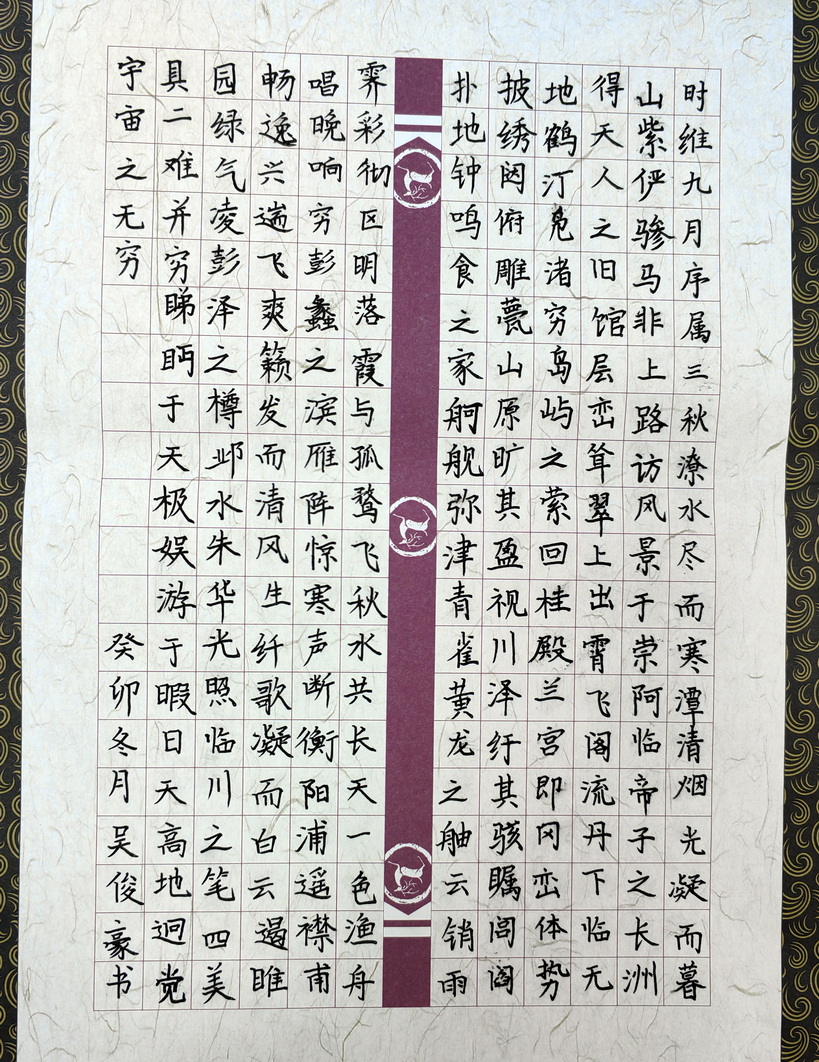 时维九月序属三秋潦水尽而寒潭清烟光凝而暮
山紫俨骖马非上路访风景于崇阿临帝子之长洲
得天人之旧馆层峦耸翠上出霄飞阁流丹下临无
地鹤汀凫渚穷岛屿之萦回桂殿兰宫即冈峦体势
披绣闼俯雕甍山原旷其盈视川泽纡其骇瞩闾阎
扑地钟鸣食之家舸舰弥津青雀黄龙之舳云销雨
霁彩彻区明落霞与孤鹜飞秋水共长天一色渔舟
唱晚响穷彭蠡之滨雁阵惊寒声断衡阳浦遥襟甫
畅逸兴遄飞爽籁发而清风生纤歌凝而白云遏睢
园绿气凌彭泽之樽邺水朱华光照临川之笔四美
具二难并穷睇眄于天极娱游于暇日天高地迥党
宇宙之无穷
癸卯冬月吴俊豪书